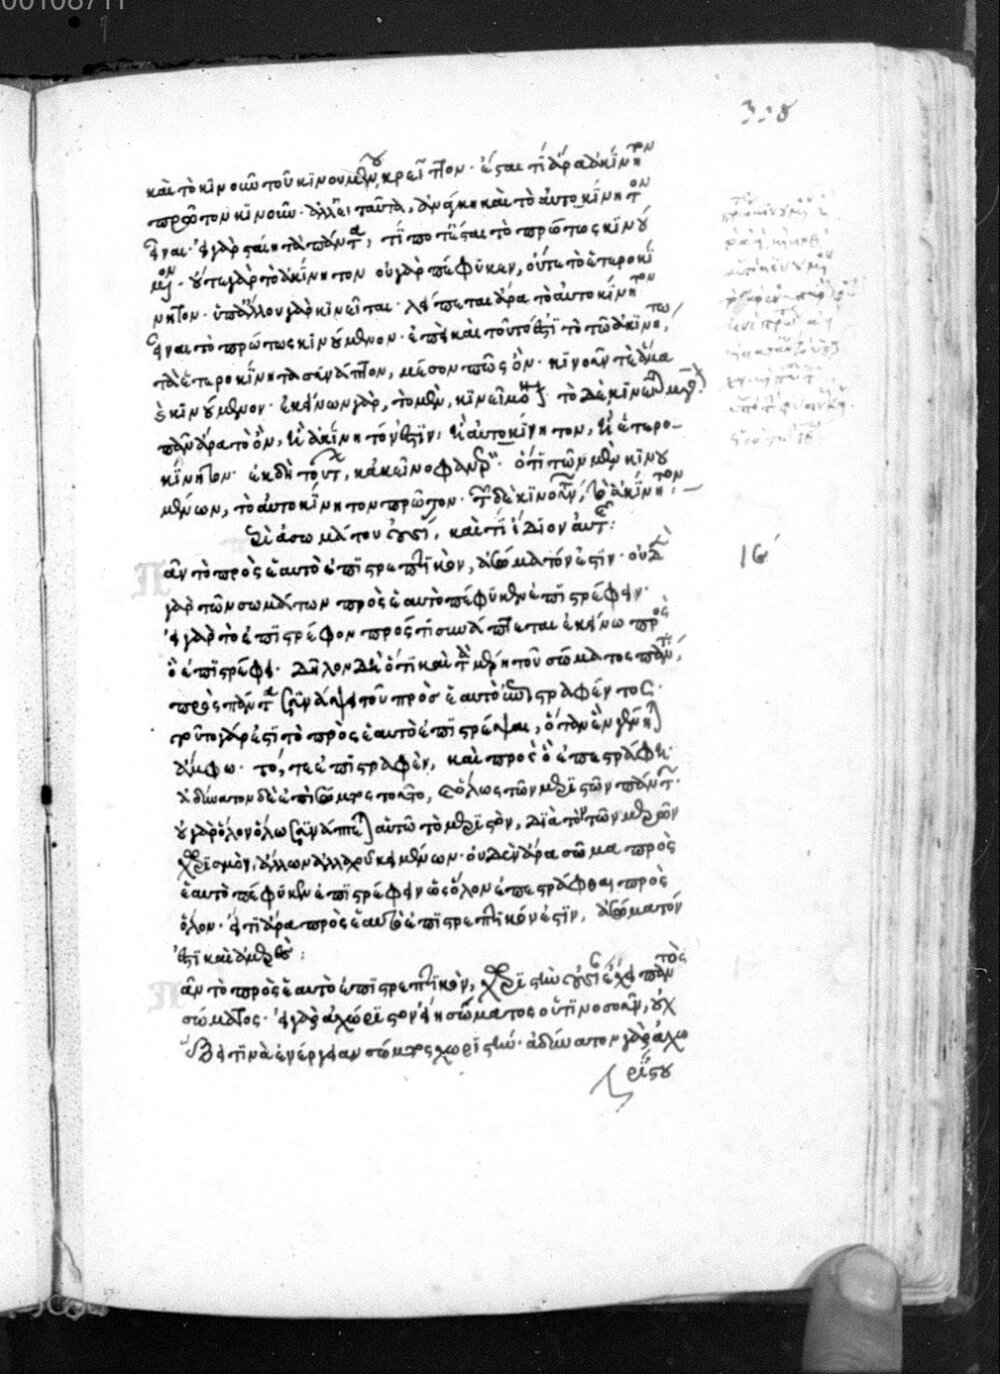 00108711
338
καὶ τὸ κινοῦν τοῦ κινουμένου κρεῖττον· ἔσται τί ἄρα ἀκίνητον
πρῶτον κινοῦν· ἀλλ' εἰ ταῦτα, ἀνάγκη καὶ τὸ αὐτοκίνητον
εἶναι· εἰ γὰρ σταίη τὰ πάντα, τί ποτὲ ἔσται τὸ πρώτως κινού
μενον· οὔτε γὰρ τὸ ἀκίνητον οὐ γὰρ πέφυκεν, οὔτε τὸ ἑτεροκί
νητον· ὑπ' ἄλλου γὰρ κινεῖται· λείπεται ἄρα τὸ αὐτοκίνητον
εἶναι τὸ πρώτως κινούμενον· ἐπεὶ καὶ τοῦτό ἐστι τὸ τῶ ἀκινήτω,
τὰ ἑτεροκίνητα συνάπτον, μέσον πῶς ὄν· κινοῦν τὲ ἅμα
καὶ κινούμενον· ἐκείνων γὰρ, τὸ μὲν, κινεῖ μόνον· τὸ δὲ, κινεῖται μόνον·
πᾶν ἄρα τὸ ὂν, ἢ ἀκίνητόν ἐστιν, ἢ αὐτοκίνητον, ἢ ἑτερο-
κίνητον· ἐκ δὴ τούτων, κἀκεῖνο φανερόν· ὅτι τῶν μὲν κινου
μένων, τὸ αὐτοκίνητον πρῶτον· τῶν δὲ κινούντων, τὸ ἀκίνητον:—
Τί ἀσωμάτου οὐσί, καὶ τί ἴδιον αὐτῆς:
ᾶν τὸ πρὸς ἑαυτὸ ἐπιστρεπτικὸν, ἀσώματόν ἐστιν· οὐδὲν
γὰρ τῶν σωμάτων πρὸς ἑαυτὸ πέφυκεν ἐπιστρέφειν·
εἰ γὰρ τὸ ἐπιστρέφον πρός τι συνάπτεται ἐκείνω πρὸς
ὃ ἐπιστρέφει· δῆλον δὴ ὅτι καὶ τὰ μέρη τοῦ σώματος πάντα,
πρὸς πάντα συνάψει τοῦ πρὸς ἑαυτὸ ἐπιστραφέντος·
τοῦτο γάρ ἐστι τὸ πρὸς ἑαυτὸ ἐπιστρέψαι, ὅταν ἓν γένηται
ἄμφω· τό, τε ἐπιστραφὲν, καὶ πρὸς ὃ ἐπεστράφη·
ἀδύνατον δὲ ἐπὶ σώματος τοῦτο, καὶ ὅλως τῶν μεριστῶν πάντων·
οὐ γὰρ ὅλον ὅλω συνάπτεται αὐτῶ τὸ μεριστὸν, διὰ τὸν τῶν μερῶν
χωρισμὸν, ἄλλων ἀλλαχοῦ κειμένων· οὐδὲν ἄρα σῶμα πρὸς
ἑαυτὸ πέφυκεν ἐπιστρέφειν ὡς ὅλον ἐπεστράφθαι πρὸς
ὅλον· εἴ τι ἄρα πρὸς ἑαυτὸ ἐπιστρεπτικόν ἐστιν, ἀσώματόν
ἐστι καὶ ἀμερές:
ιϛ´
ᾶν τὸ πρὸς ἑαυτὸ ἐπιστρεπτικὸν, χωριστὴν οὐσίαν ἔχει παντὸς
σώματος· εἰ γὰρ ἀχώριστον εἴη σώματος οὑτινοσοῦν, οὐχ
ἕξει τινὰ ἐνέργειαν σώματος χωριστήν· ἀδύνατον γὰρ ἀχω
ρίστου